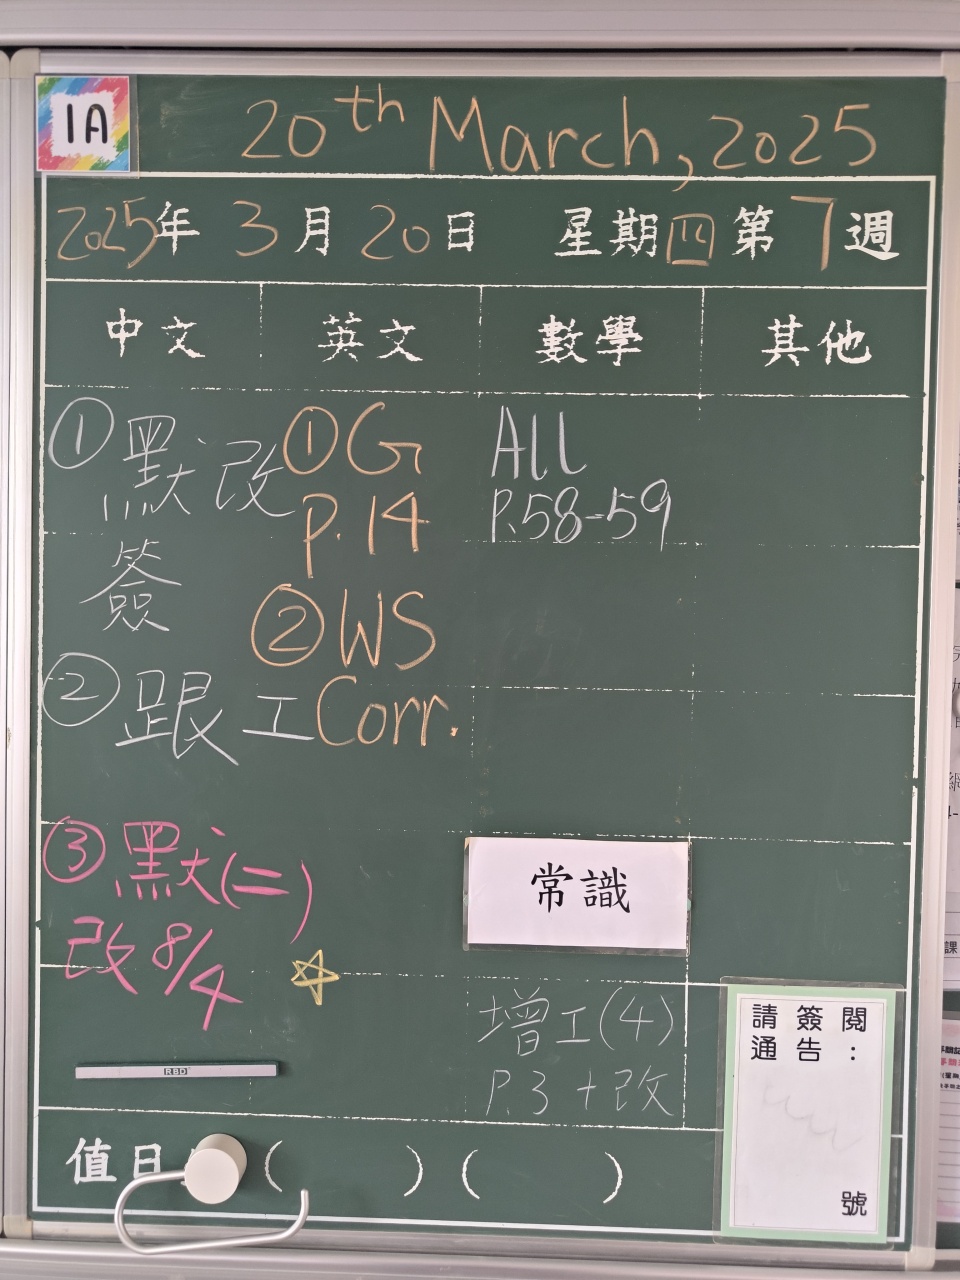 1A
20th March, 2025
2025年 3月 20日 星期四 第 7 週
中文 英文 數學 其他
① 默改
簽
② 跟工
③ 默(二)
改 8/4
① G
P.14
② WS
Corr.
All
P.58-59
常識
增工(4)
P.3 + 改
RBD
請簽閱
通告：
號
值日 ( ) ( )